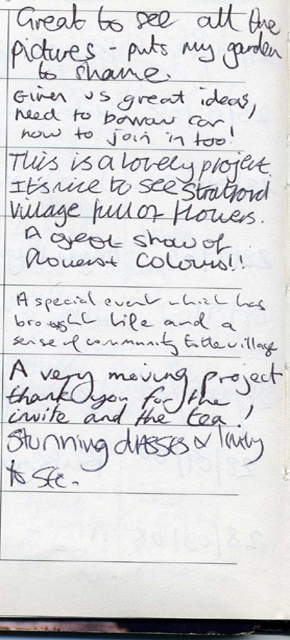 Great to see all the
pictures - puts my garden
to shame.
Given us great ideas,
need to borrow car
now to join in too!
This is a lovely project.
It's nice to see Stratford
Village full of flowers.
A great show of
flowers + colours!!
A special event which has
brought life and a
sense of community to the village
A very moving project
thank you for the
invite and the tea!
Stunning dresses & lovely
to see.